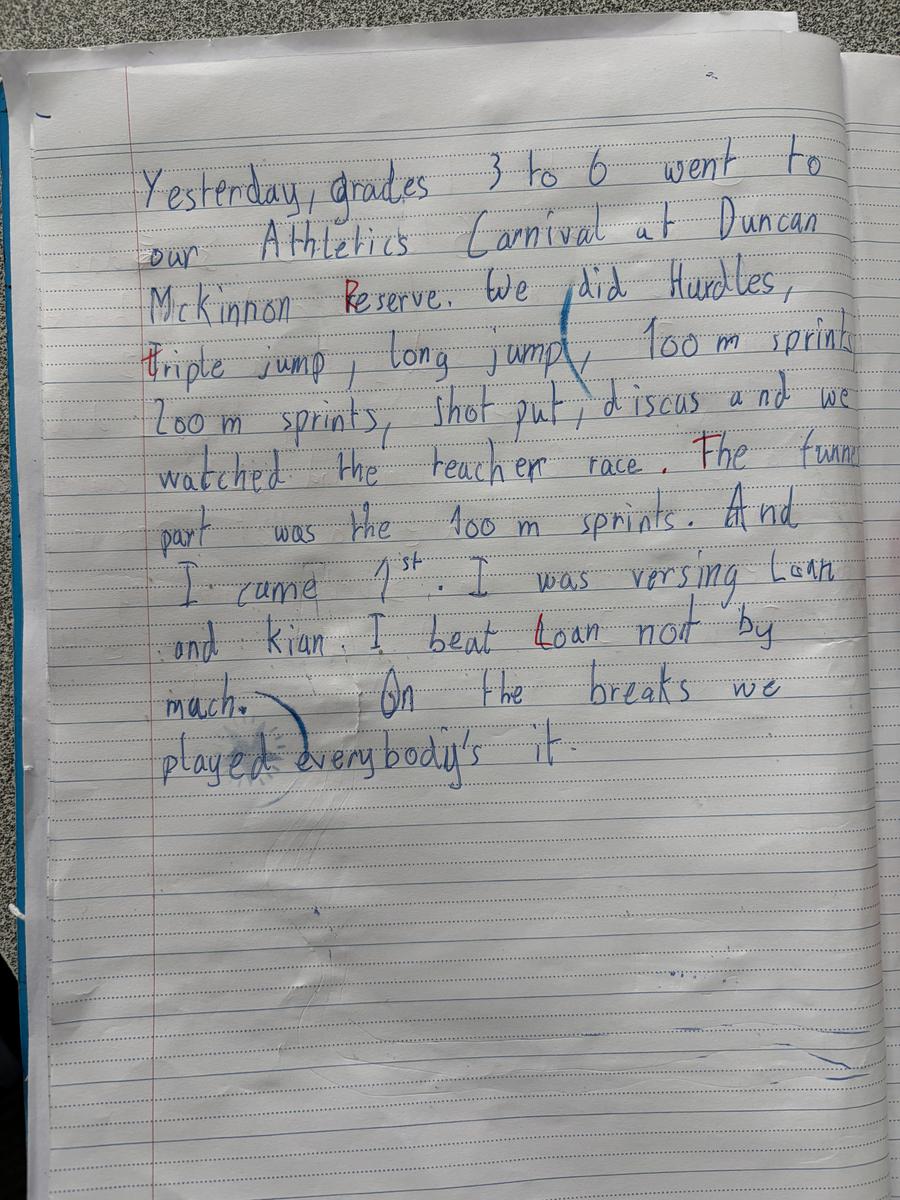 Yesterday, grades 3 to 6 went to
our Athletics Carnival at Duncan
Mckinnon Reserve. We did Hurdles,
triple jump, long jump, 100 m sprints
200 m sprints, shot put, discus and we
watched the teacher race. The
part was the 100 m sprints. And
I came 1st. I was versing Loan
and kian. I beat Loan not by
mach. On the breaks we
played everybody's it.